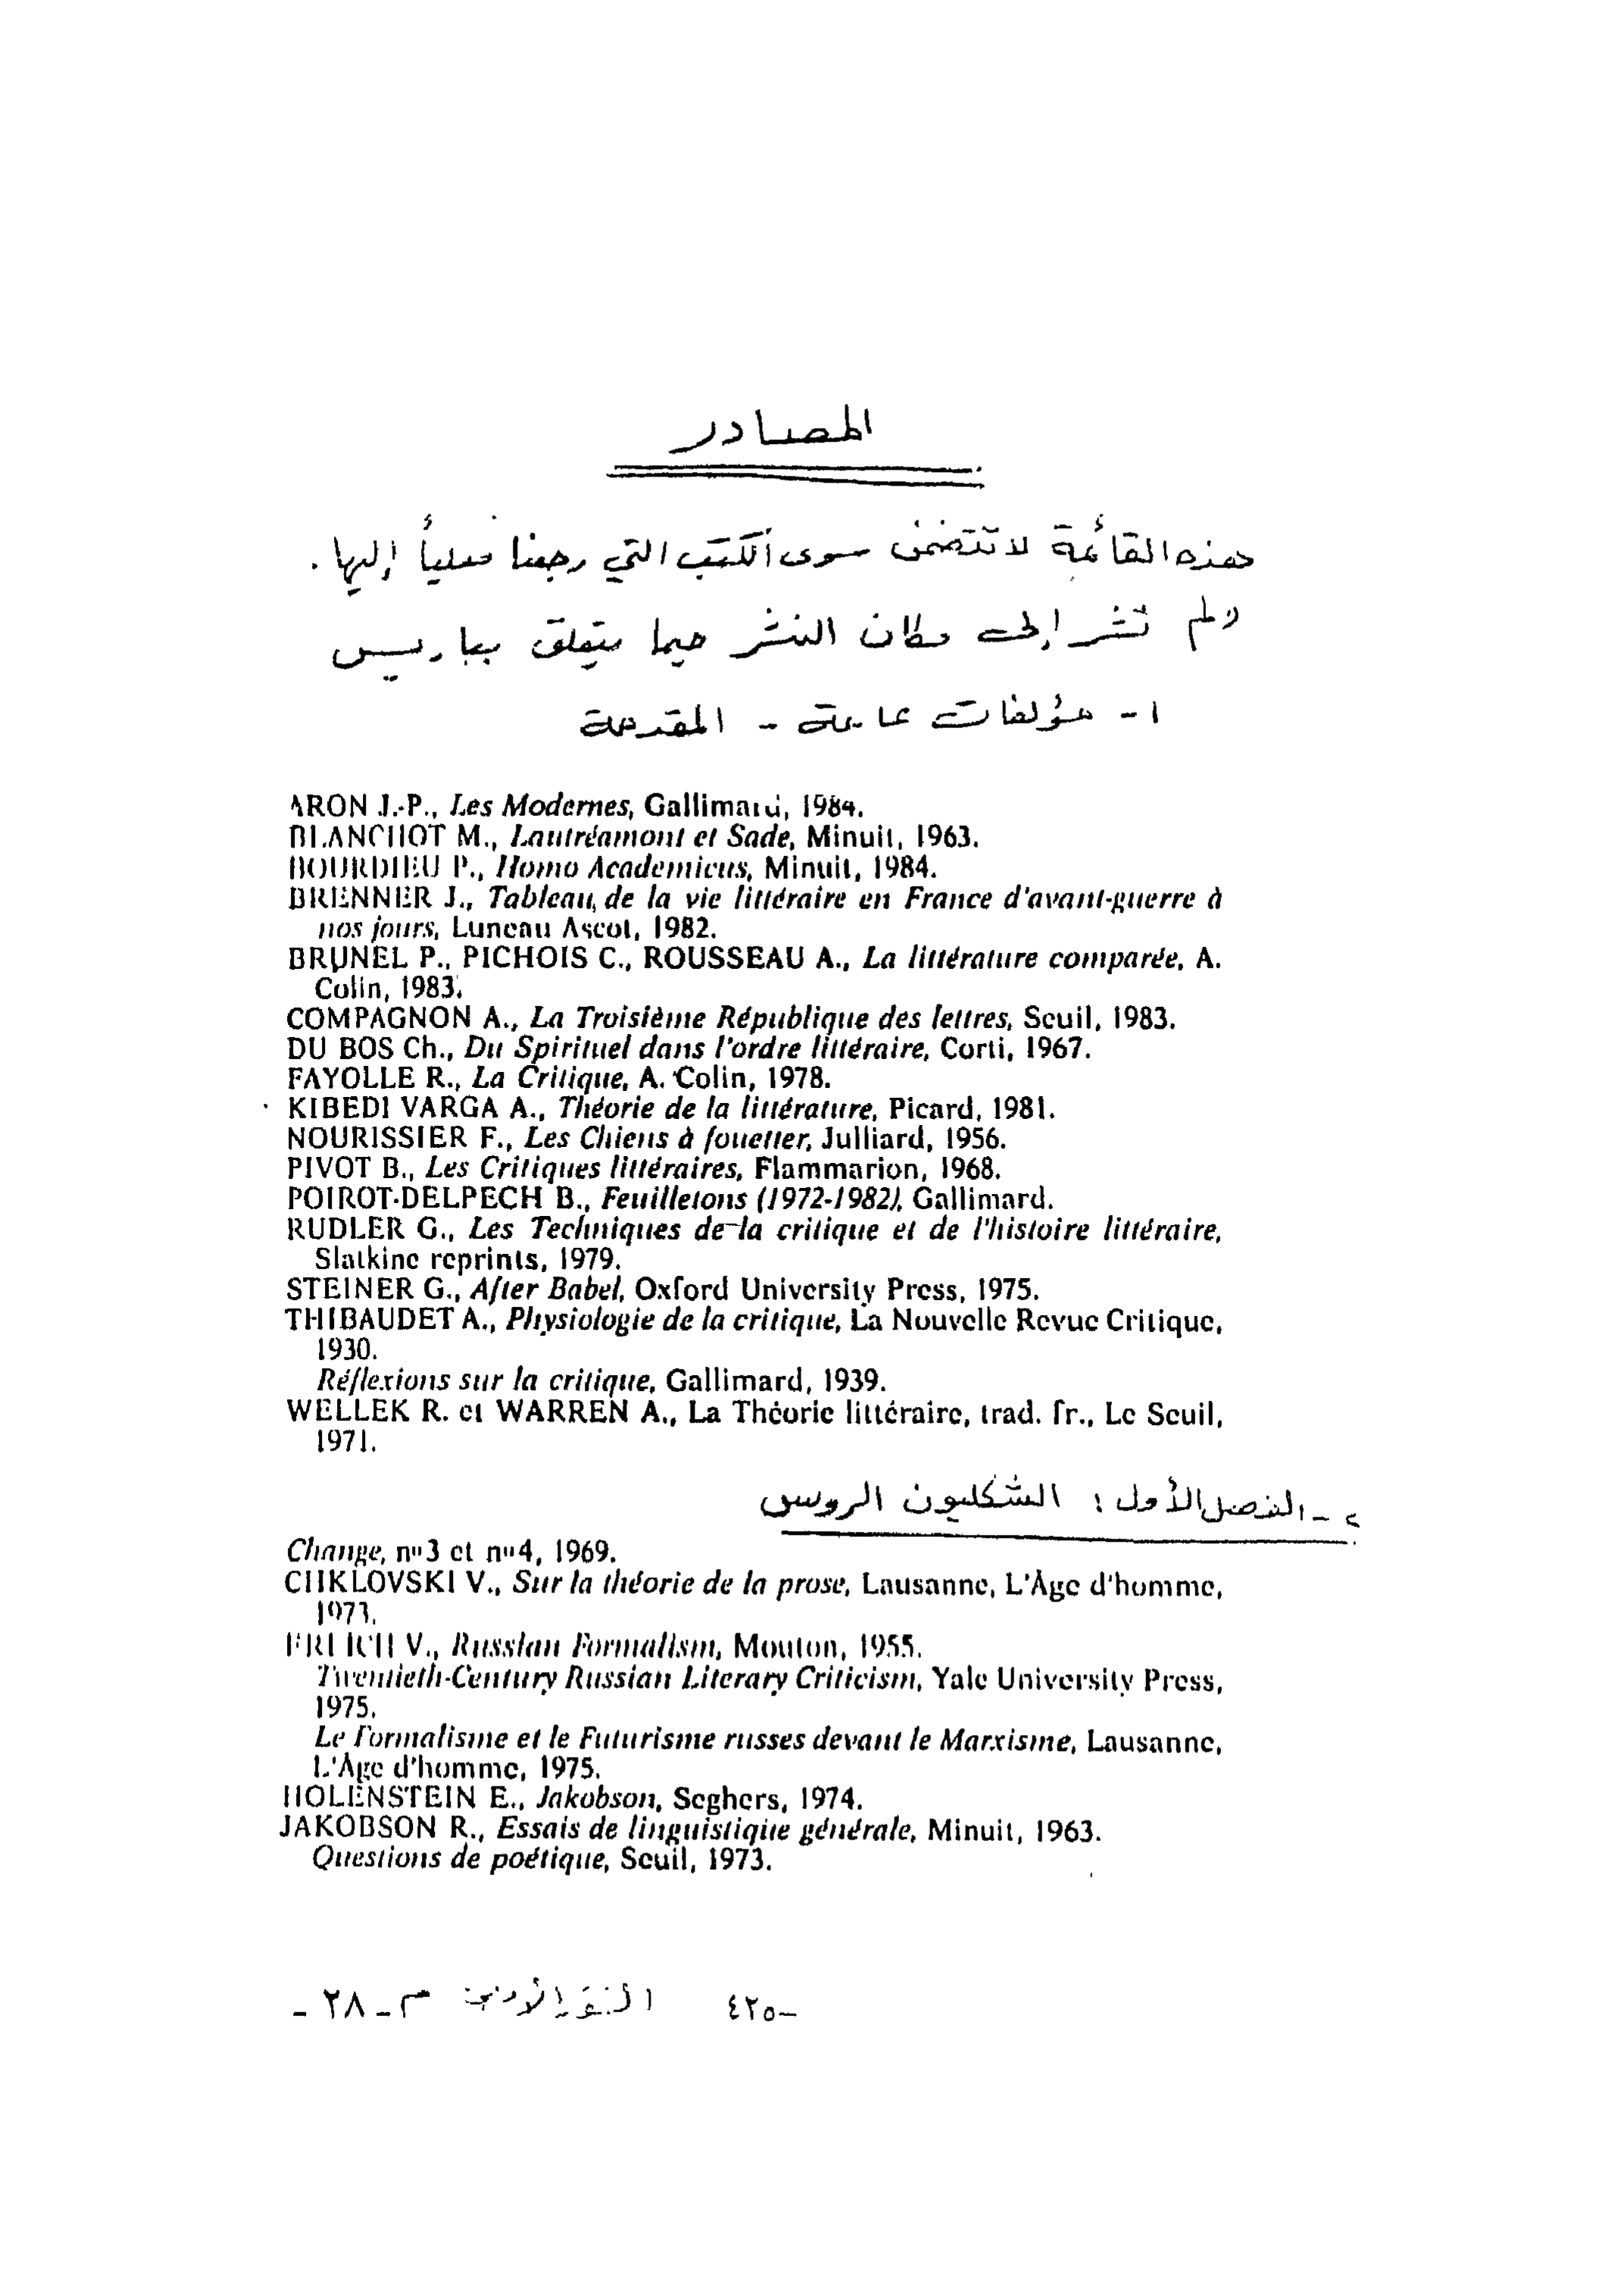 المصادر
هذه القائمة لا تتضمن سوى الكتب التي رجعنا فعلياً إليها .
ولم نشر إلى مكان النشر فيما يتعلق بباريس
١- مؤلفات عامة - المقدمة
ARON J.-P., Les Modernes, Gallimard, 1984.
BLANCHOT M., Lautréamont et Sade, Minuit, 1963.
BOURDIEU P., Homo Academicus, Minuit, 1984.
BRENNER J., Tableau de la vie littéraire en France d'avant-guerre à
nos jours, Luneau Ascot, 1982.
BRUNEL P., PICHOIS C., ROUSSEAU A., La littérature comparée, A.
Colin, 1983.
COMPAGNON A., La Troisième République des lettres, Seuil, 1983.
DU BOS Ch., Du Spirituel dans l'ordre littéraire, Corti, 1967.
FAYOLLE R., La Critique, A. Colin, 1978.
KIBEDI VARGA A., Théorie de la littérature, Picard, 1981.
NOURISSIER F., Les Chiens à fouetter, Julliard, 1956.
PIVOT B., Les Critiques littéraires, Flammarion, 1968.
POIROT-DELPECH B., Feuilletons (1972-1982), Gallimard.
RUDLER G., Les Techniques de la critique et de l'histoire littéraire,
Slatkine reprints, 1979.
STEINER G., After Babel, Oxford University Press, 1975.
THIBAUDET A., Physiologie de la critique, La Nouvelle Revue Critique,
1930.
Réflexions sur la critique, Gallimard, 1939.
WELLEK R. et WARREN A., La Théorie littéraire, trad. fr., Le Seuil,
1971.
٢ - الفصل الأول : الشكليون الروس
Change, nº 3 et nº 4, 1969.
CHKLOVSKI V., Sur la théorie de la prose, Lausanne, L'Âge d'homme,
1973.
ERLICH V., Russian Formalism, Mouton, 1955.
Twentieth-Century Russian Literary Criticism, Yale University Press,
1975.
Le Formalisme et le Futurisme russes devant le Marxisme, Lausanne,
L'Âge d'homme, 1975.
HOLENSTEIN E., Jakobson, Seghers, 1974.
JAKOBSON R., Essais de linguistique générale, Minuit, 1963.
Questions de poétique, Seuil, 1973.
-٤٢٥ النقد الأدبي م - ٢٨ -